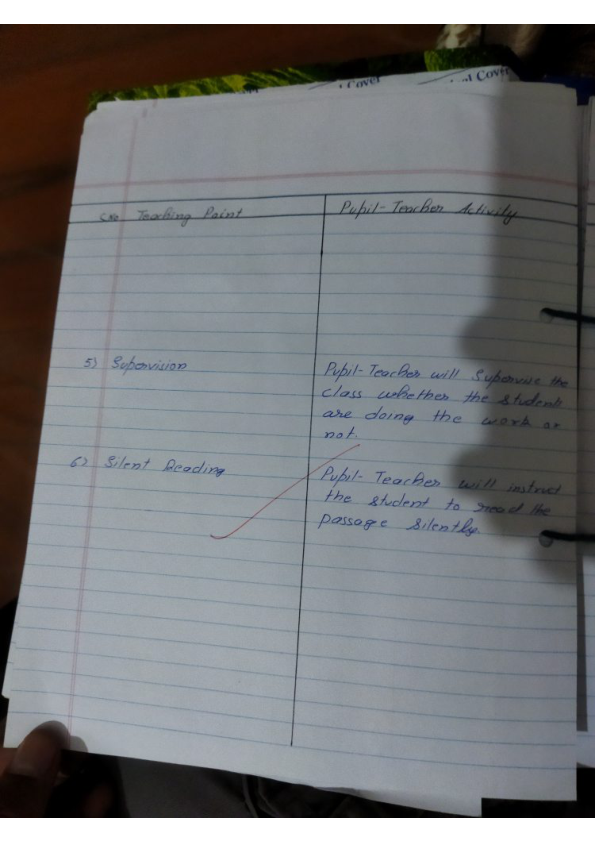 Cover
al Cover
Teaching Point
Pupil-Teacher Activity
5) Supervision
Pupil-Teacher will Supervise the
class whether the students
are doing the work or
not.
6) Silent Reading
Pupil-Teacher will instruct
the student to read the
passage silently.